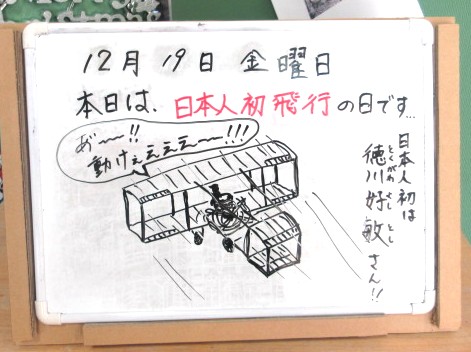 12月19日 金曜日
本日は、日本人初飛行の日です...
あ゛〜〜!!
動けぇぇぇぇ〜!!!
日本人初は
徳川好敏さん!!
とくがわ よし とし